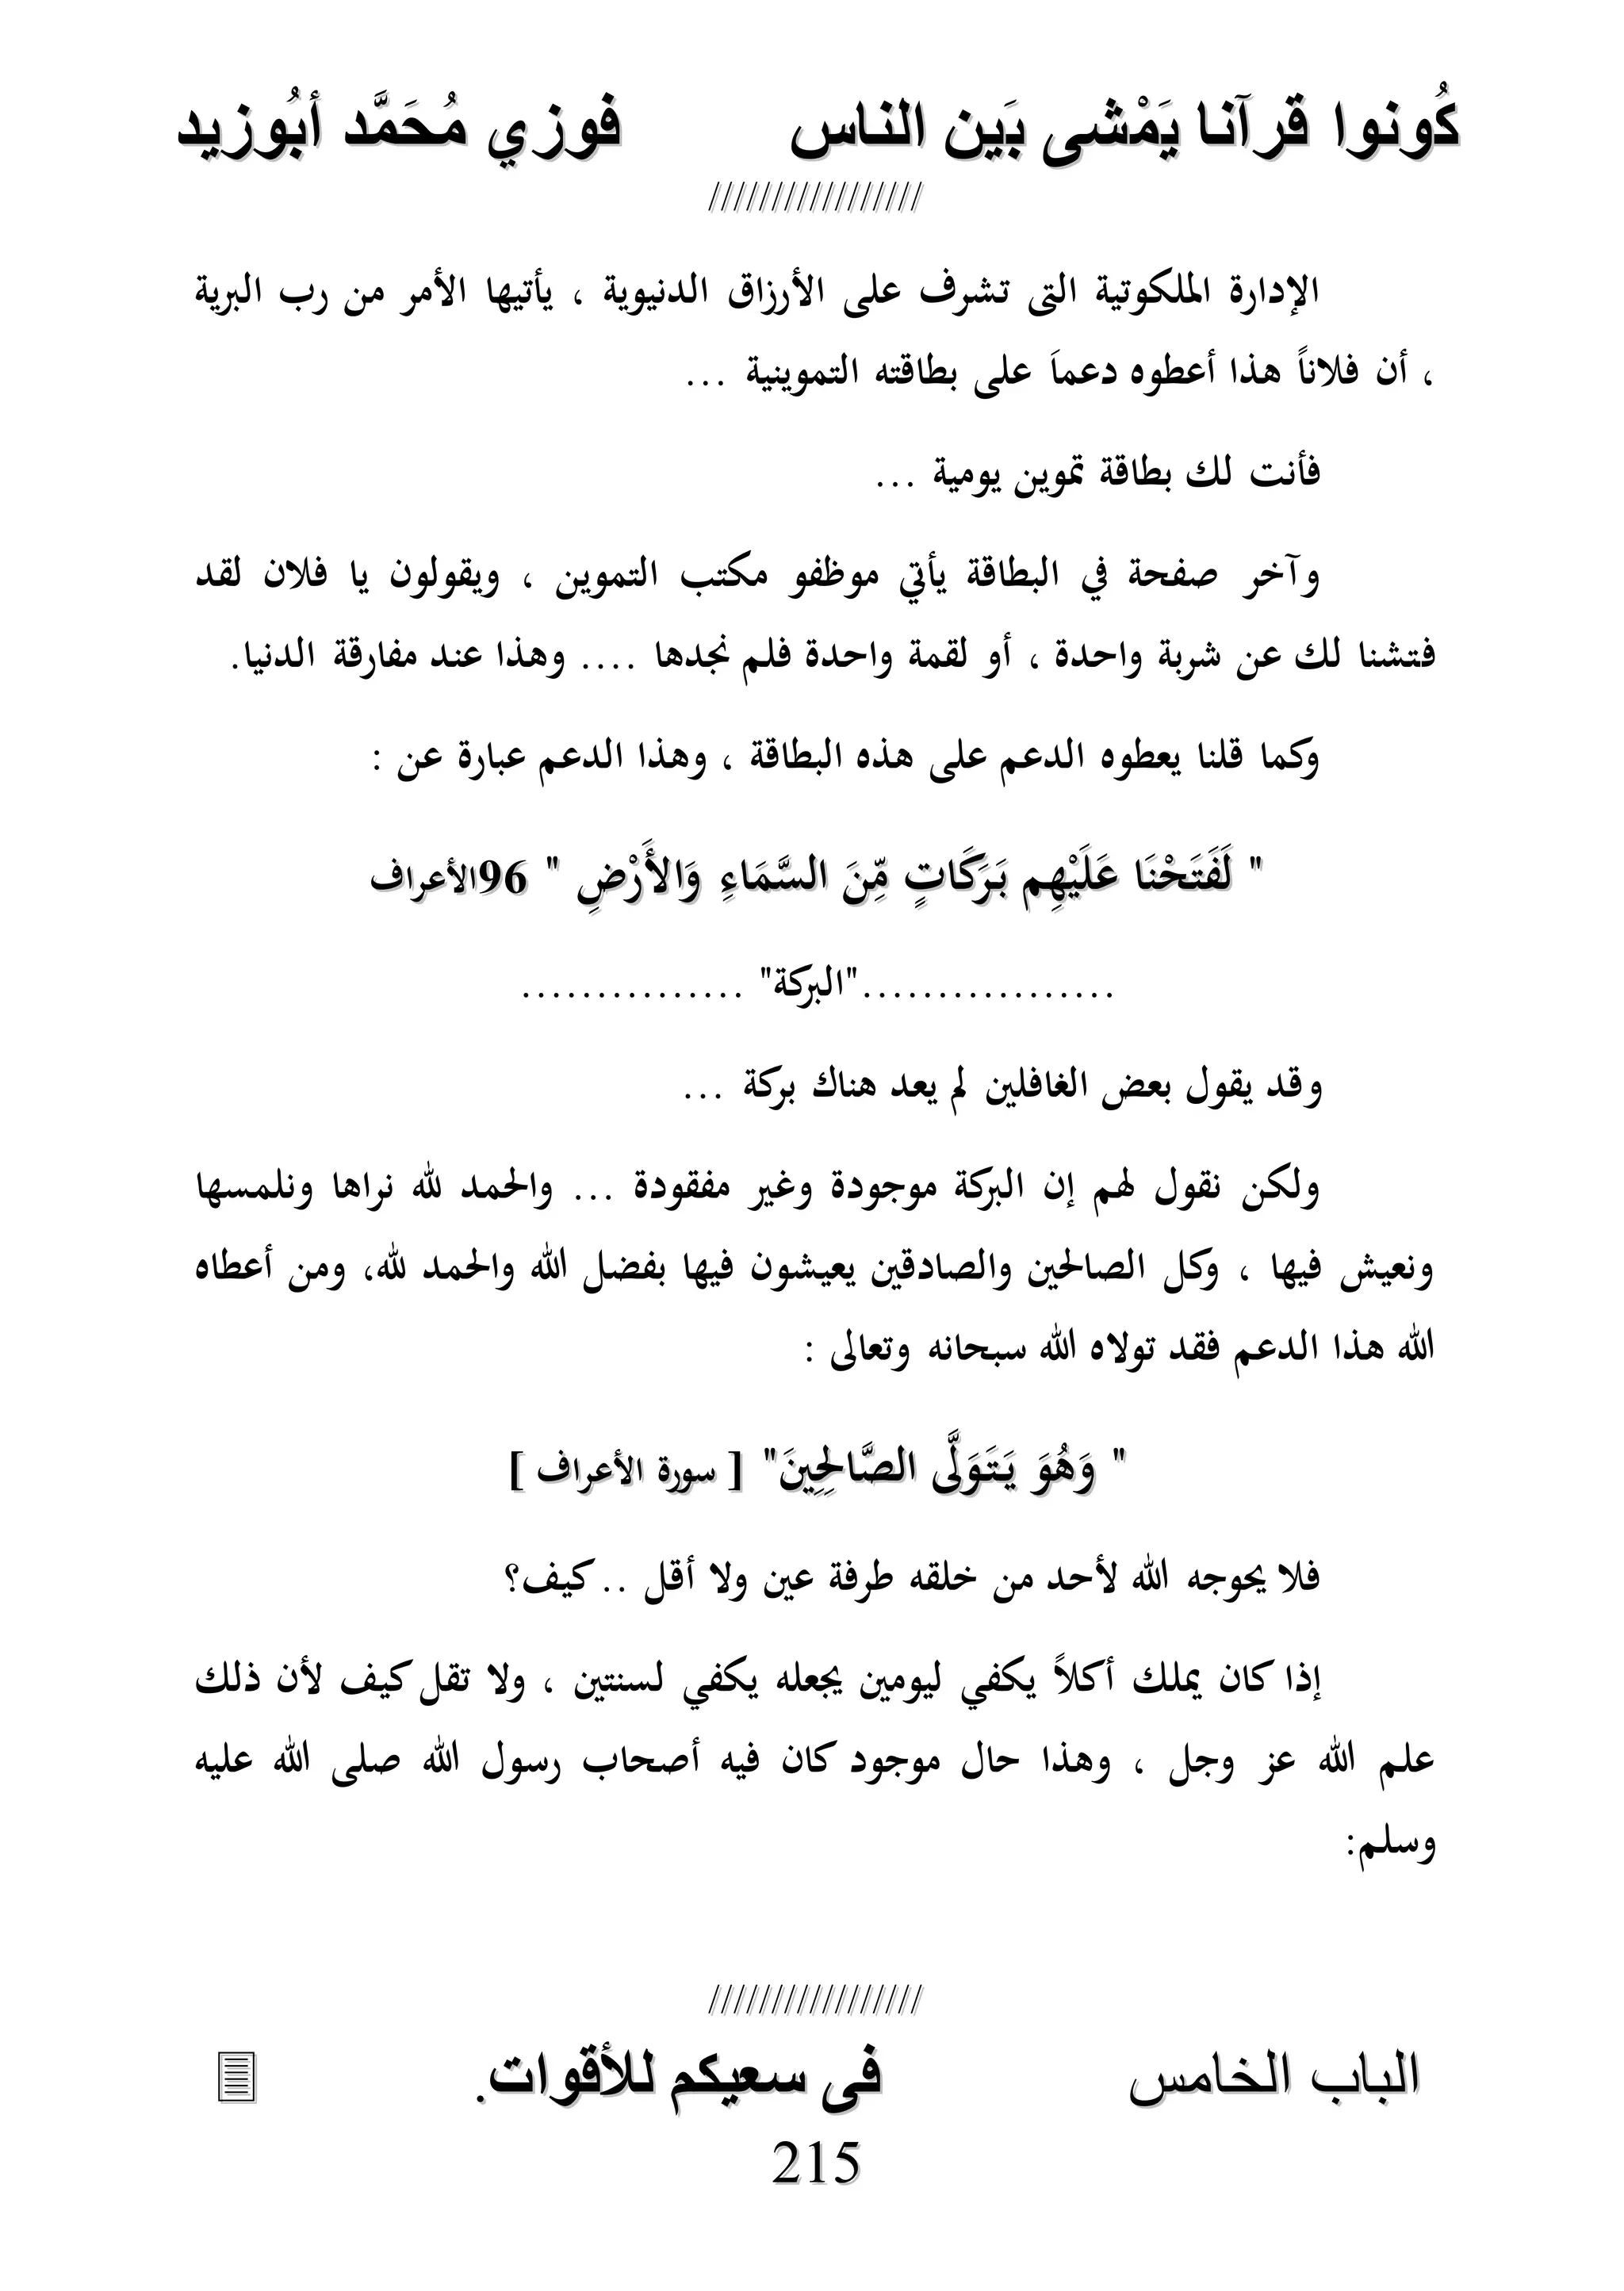 كُونوا قرآنا يَمْشى بَين الناس فوزي مُحَمَّد أبُوزيد
/////////////////
الإدارة الملكوتية التى تشرف على الأرزاق الدنيوية ، يأتيها الأمر من رب البرية
، أن فلاناً هذا أعطوه دعماَ على بطاقته التموينية ...
فأنت لك بطاقة تموين يومية ...
وآخر صفحة في البطاقة يأتي موظفو مكتب التموين ، ويقولون يا فلان لقد
فتشنا لك عن شربة واحدة ، أو لقمة واحدة فلم نجدها .... وهذا عند مفارقة الدنيا.
وكما قلنا يعطوه الدعم على هذه البطاقة ، وهذا الدعم عبارة عن :
" لَفَتَحْنَا عَلَيْهِم بَرَكَاتٍ مِّنَ السَّمَاءِ وَالأَرْضِ " 96الأعراف
................."البركة" ...............
وقد يقول بعض الغافلين لم يعد هناك بركة ...
ولكن نقول لهم إن البركة موجودة وغير مفقودة ... والحمد لله نراها ونلمسها
ونعيش فيها ، وكل الصالحين والصادقين يعيشون فيها بفضل الله والحمد لله، ومن أعطاه
الله هذا الدعم فقد تولاه الله سبحانه وتعالى :
" وَهُوَ يَتَوَلَّى الصَّالِحِينَ" [ سورة الأعراف ]
فلا يحوجه الله لأحد من خلقه طرفة عين ولا أقل .. كيف؟
إذا كان يملك أكلاً يكفي ليومين يجعله يكفي لسنتين ، ولا تقل كيف لأن ذلك
علم الله عز وجل ، وهذا حال موجود كان فيه أصحاب رسول الله صلى الله عليه
وسلم:
/////////////////
الباب الخامس فى سعيكم للأقوات.
215